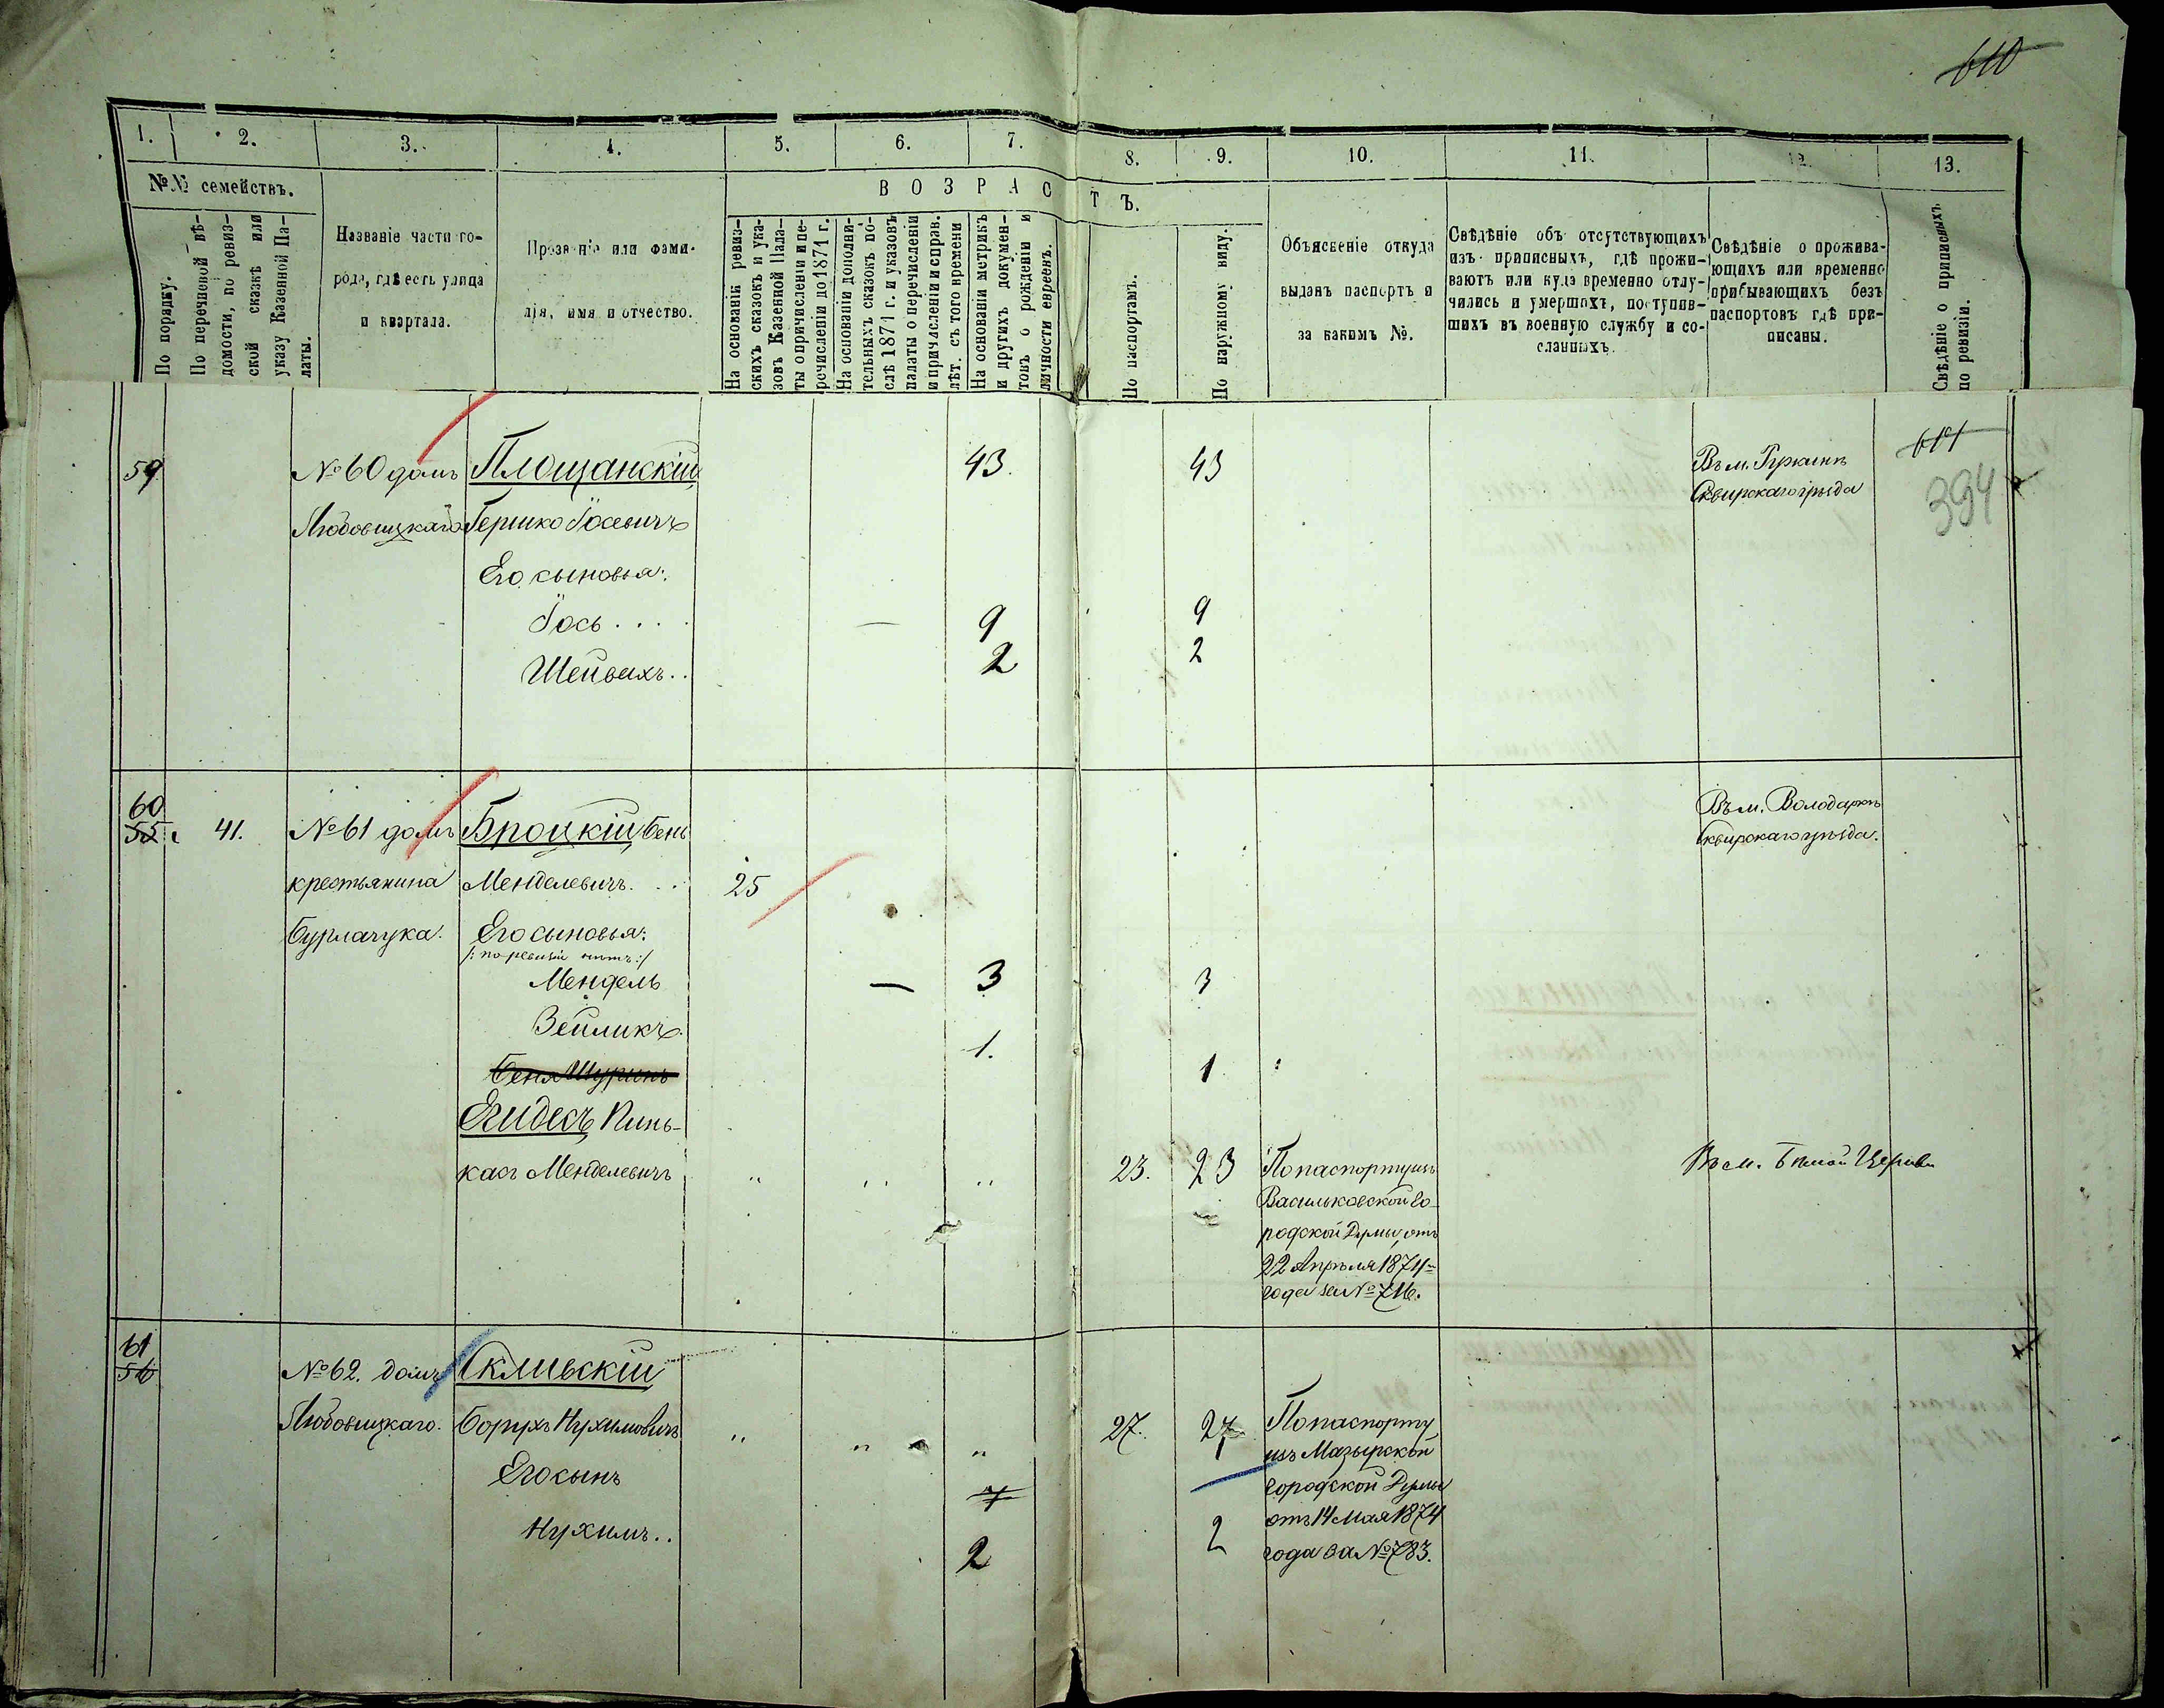 610
1. 2. 3. 4. 5. 6. 7. 8. 9. 10. 11. 12. 13.
№№ семействъ.
По порядку.
По перечневой вѣ-
домости, по ревиз-
ской сказкѣ или
указу Казенной Па-
латы.
Названіе части го-
рода, гдѣ есть улица
и квартала.
Прозваніе или фами-
лія, имя и отчество.
ВОЗРАСТЪ.
На основаніи ревиз-
скихъ сказокъ и ука-
зовъ Казенной Пала-
ты о причисленіи и пе-
речисленіи до 1871 г.
На основаніи дополни-
тельныхъ сказокъ по-
слѣ 1871 г. и указовъ
палаты о перечисленіи
и причисленіи и справ.
лѣт. съ того времени
На основаніи метрикъ
и другихъ докумен-
товъ о рожденіи и
личности евреевъ.
По паспортамъ.
По наружному виду.
Объясненіе откуда
выданъ паспортъ и
за какимъ №.
Свѣдѣніе объ отсутствующихъ
изъ приписныхъ, гдѣ прожи-
ваютъ или куда временно отлу-
чились и умершихъ, поступив-
шихъ въ военную службу и со-
сланныхъ.
Свѣдѣніе о прожива-
ющихъ или временно
прибывающихъ безъ
паспортовъ гдѣ при-
писаны.
Свѣдѣніе о приписныхъ
по ревизіи.
59 №60 домъ Площанскій 43. 43 Въ м.
Сквирскаго уѣзда
611
394
Любовицкаго Гершко Іосевичъ
Его сыновья:
Іось . . . . — 9 9
Шейвахъ . . 2 2
60
55 41. №61 домъ Броцкій Бень Въ м. Володаркѣ
Сквирскаго уѣзда.
крестьянина Менделевичъ. . . 25
Бурлачука. Его сыновья:
/: по ревизіи нѣтъ :/
Мендель — 3 3
Зейликъ. 1. 1
Беня Шуринъ
Егидесъ Пинь-
касъ Менделевичъ „ „ „ 23. 23 По паспорту изъ Въ м. Бѣлой Церкви
Васильковской Го-
родской Думы, отъ
22 Апрѣля 1874
года за № 716.
61
56 №62. домъ Скливскій
Любовицкаго. Борухъ Нухимовичъ „ „ „ 27. 27 По паспорту
изъ Мазырской
Его сынъ городской Думы
Нухимъ . . 2 2 отъ 14 Мая 1874
года за № 783.